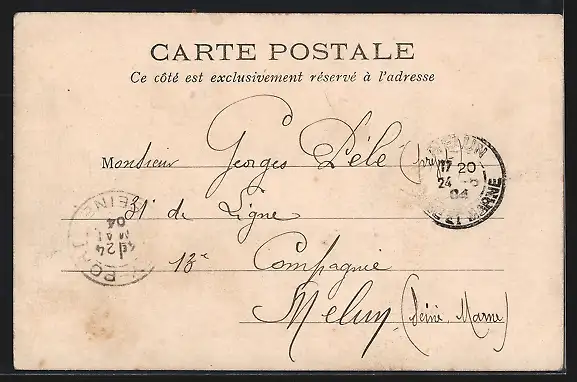 CARTE POSTALE
Ce côté est exclusivement réservé à l'adresse
Monsieur Georges Pélé
31e de Ligne
13e Compagnie
Melun (Seine, Marne)
MELUN
17 20
24
04
MARNE
SEINE
24
MAI
04